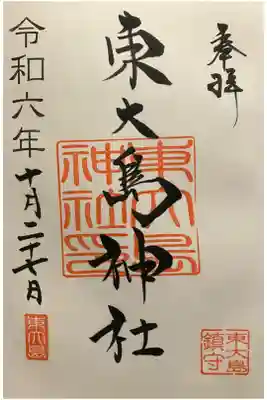 奉拝
東大島神社
東大島
神社印
令和六年十月二十七日
東大島
東大島
鎮守